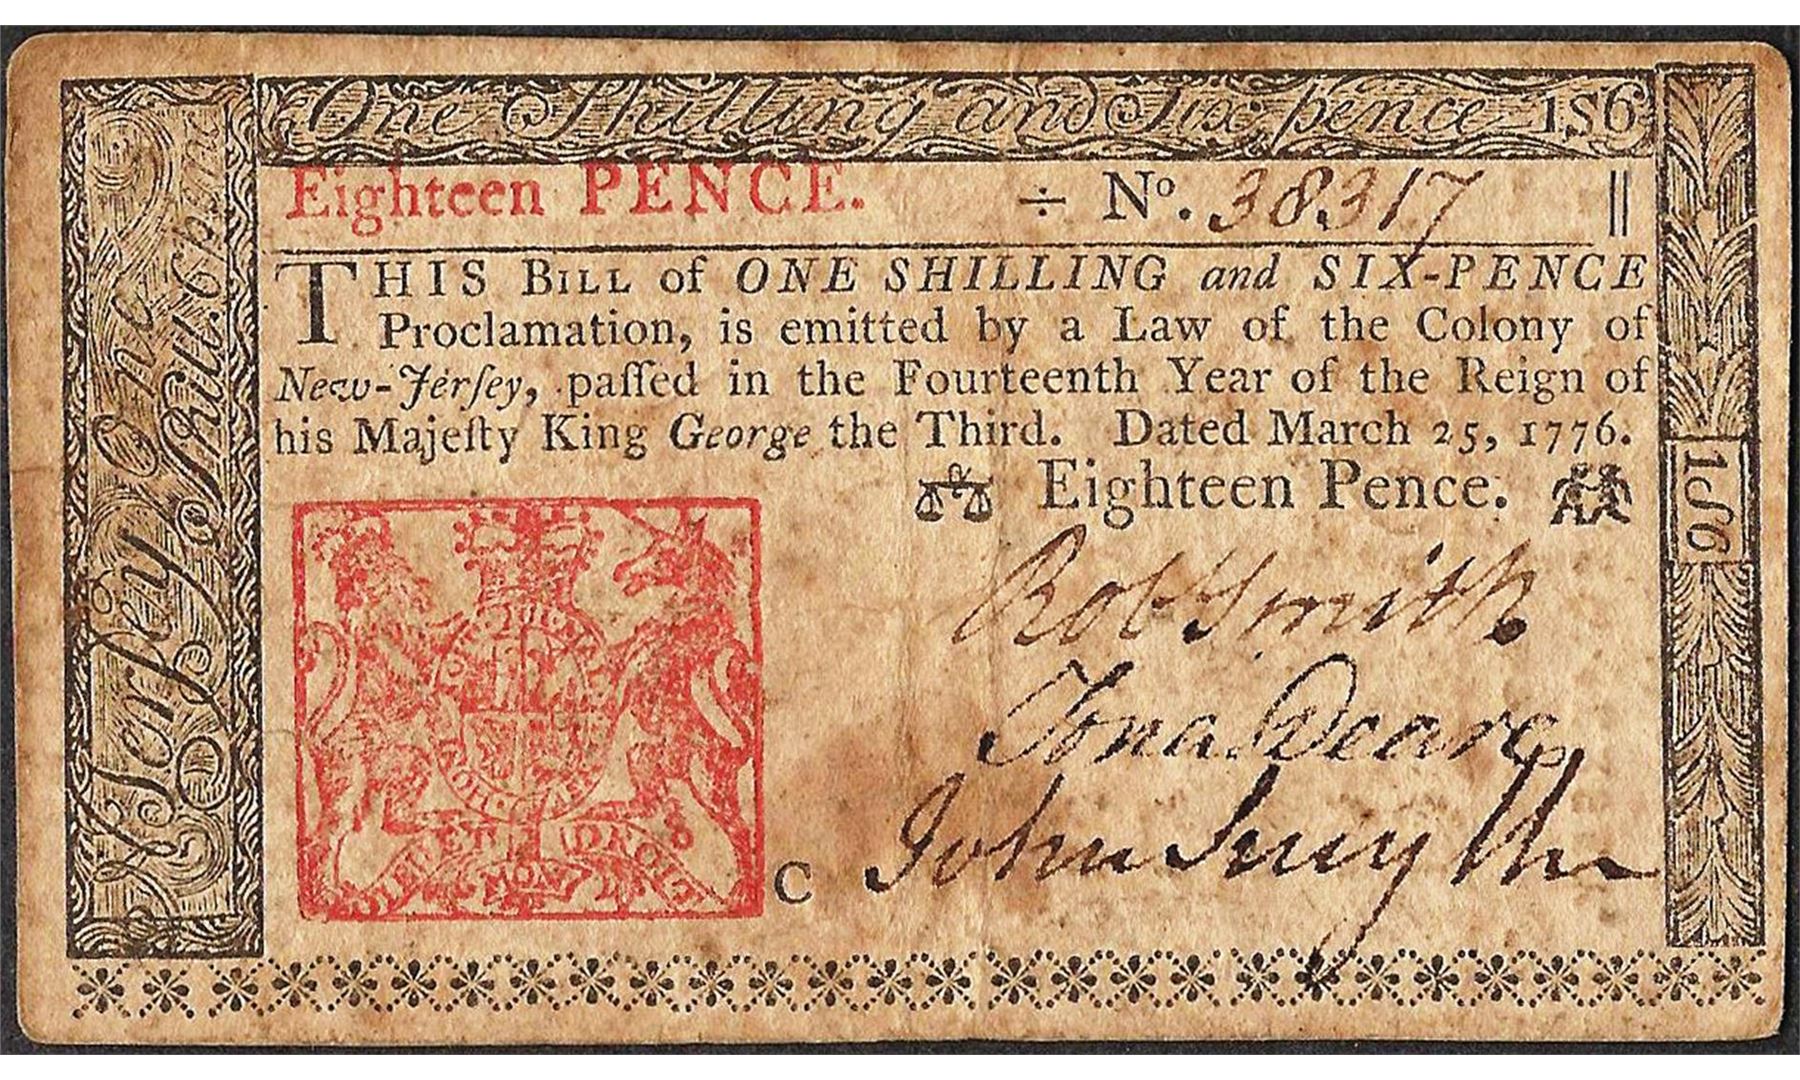 One Shilling and Six pence 1S6
Eighteen PENCE. ÷ No. 38317 ||
THIS BILL of ONE SHILLING and SIX-PENCE
Proclamation, is emitted by a Law of the Colony of
New-Jerſey, paſſed in the Fourteenth Year of the Reign of
his Majeſty King George the Third. Dated March 25, 1776.
Eighteen Pence.
Robt Smith
Jona Deare
John Smyth
C
DIEU ET MON DROIT
Jerſey One Shill. 6 pence
1S6